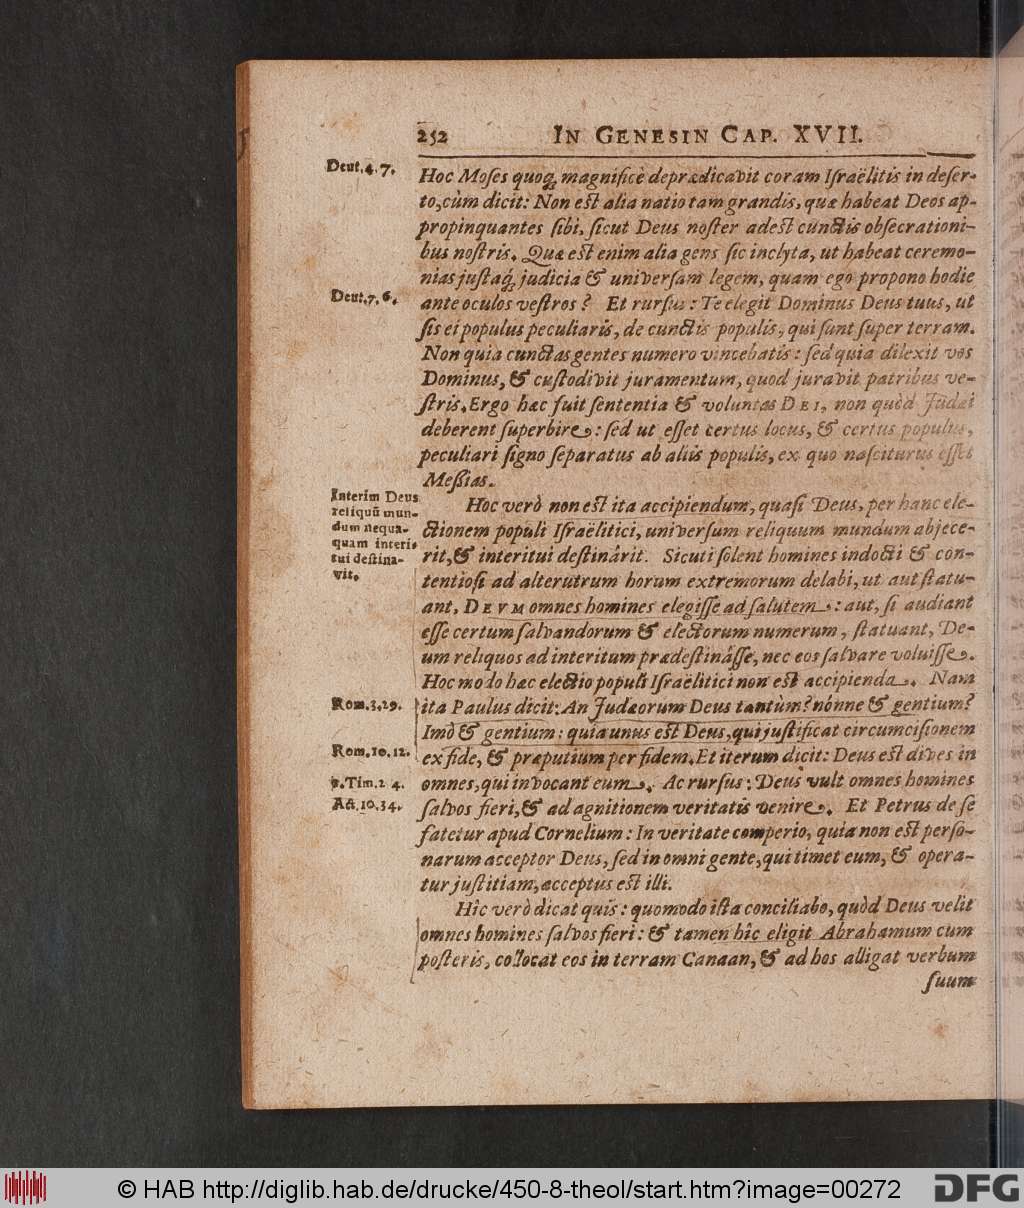 252 IN GENESIN CAP. XVII.
Deut. 4. 7.
Hoc Moſes quoq́; magnificè deprædicavit coram Iſraëlitis in deſer-
to, cùm dicit: Non eſt alia natio tam grandis, quæ habeat Deos ap-
propinquantes ſibi, ſicut Deus noſter adeſt cunctis obſecrationi-
bus noſtris. Quæ eſt enim alia gens ſic inclyta, ut habeat ceremo-
nias juſtaq́; judicia & univerſam legem, quam ego propono hodie
Deut. 7. 6.
ante oculos veſtros? Et rurſus: Te elegit Dominus Deus tuus, ut
ſis ei populus peculiaris, de cunctis populis, qui ſunt ſuper terram.
Non quia cunctas gentes numero vincebatis: ſed quia dilexit vos
Dominus, & cuſtodivit juramentum, quod juravit patribus ve-
ſtris. Ergo hæc fuit ſententia & voluntas DEI, non quòd Judæi
deberent ſuperbire: ſed ut eſſet certus locus, & certus populus,
peculiari ſigno ſeparatus ab aliis populis, ex quo naſciturus eſſet
Meſſias.
Interim Deus
reliquū mun-
dum nequa-
quam interi-
tui deſtina-
vit.
Hoc verò non eſt ita accipiendum, quaſi Deus, per hanc ele-
ctionem populi Iſraëlitici, univerſum reliquum mundum abjece-
rit, & interitui deſtinârit. Sicuti ſolent homines indocti & con-
tentioſi ad alterutrum horum extremorum delabi, ut aut ſtatu-
ant, DEVM omnes homines elegiſſe ad ſalutem: aut, ſi audiant
eſſe certum ſalvandorum & electorum numerum, ſtatuant, De-
um reliquos ad interitum prædeſtinâſſe, nec eos ſalvare voluiſſe.
Hoc modo hæc electio populi Iſraëlitici non eſt accipienda. Nam
Rom. 3. 29.
ita Paulus dicit: An Judæorum Deus tantùm? nónne & gentium?
Imò & gentium: quia unus eſt Deus, qui juſtificat circumciſionem
Rom. 10. 12.
ex fide, & præputium per fidem. Et iterum dicit: Deus eſt dives in
1. Tim. 2 4.
omnes, qui invocant eum. Ac rurſus: Deus vult omnes homines
Act. 10. 34.
ſalvos fieri, & ad agnitionem veritatis venire. Et Petrus de ſe
fatetur apud Cornelium: In veritate comperio, quia non eſt perſo-
narum acceptor Deus, ſed in omni gente, qui timet eum, & opera-
tur juſtitiam, acceptus eſt illi.
Hîc verò dicat quis: quomodo iſta conciliabo, quòd Deus velit
omnes homines ſalvos fieri: & tamen hîc eligit Abrahamum cum
poſteris, collocat eos in terram Canaan, & ad hos alligat verbum
ſuum
© HAB http://diglib.hab.de/drucke/450-8-theol/start.htm?image=00272
DFG